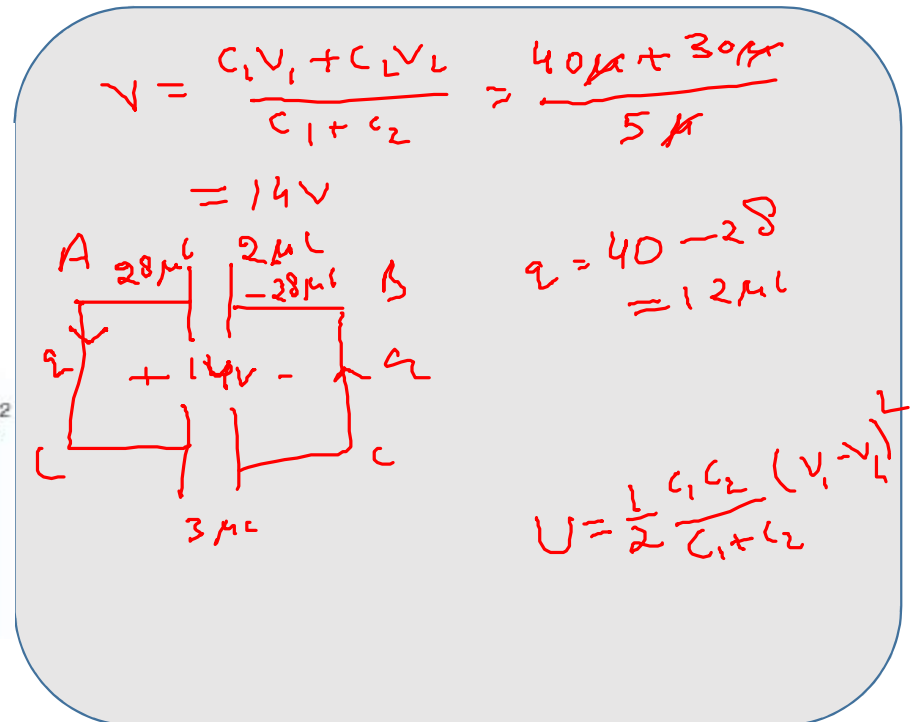 V = (C₁V₁ + C₂V₂) / (C₁ + C₂) = (40μ + 30μ) / 5μ
= 14V
A 28μC 2μC
-28μC B
q = 40 - 28
= 12μC
q + 14V - q
2
C C
3μC
U = 1/2 C₁C₂ / (C₁ + C₂) (V₁ - V₂)²